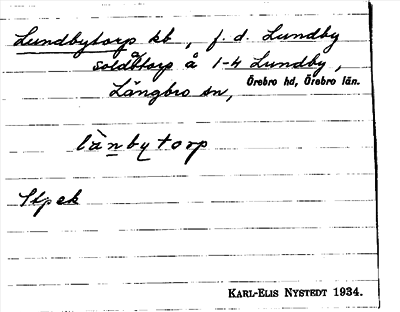 Lundbytorp kb, f. d. Lundby
soldattorp å 1-4 Lundby,
Längbro sn, Örebro hd, Örebro län.
lànbytorp
Stpek
KARL-ELIS NYSTEDT 1934.